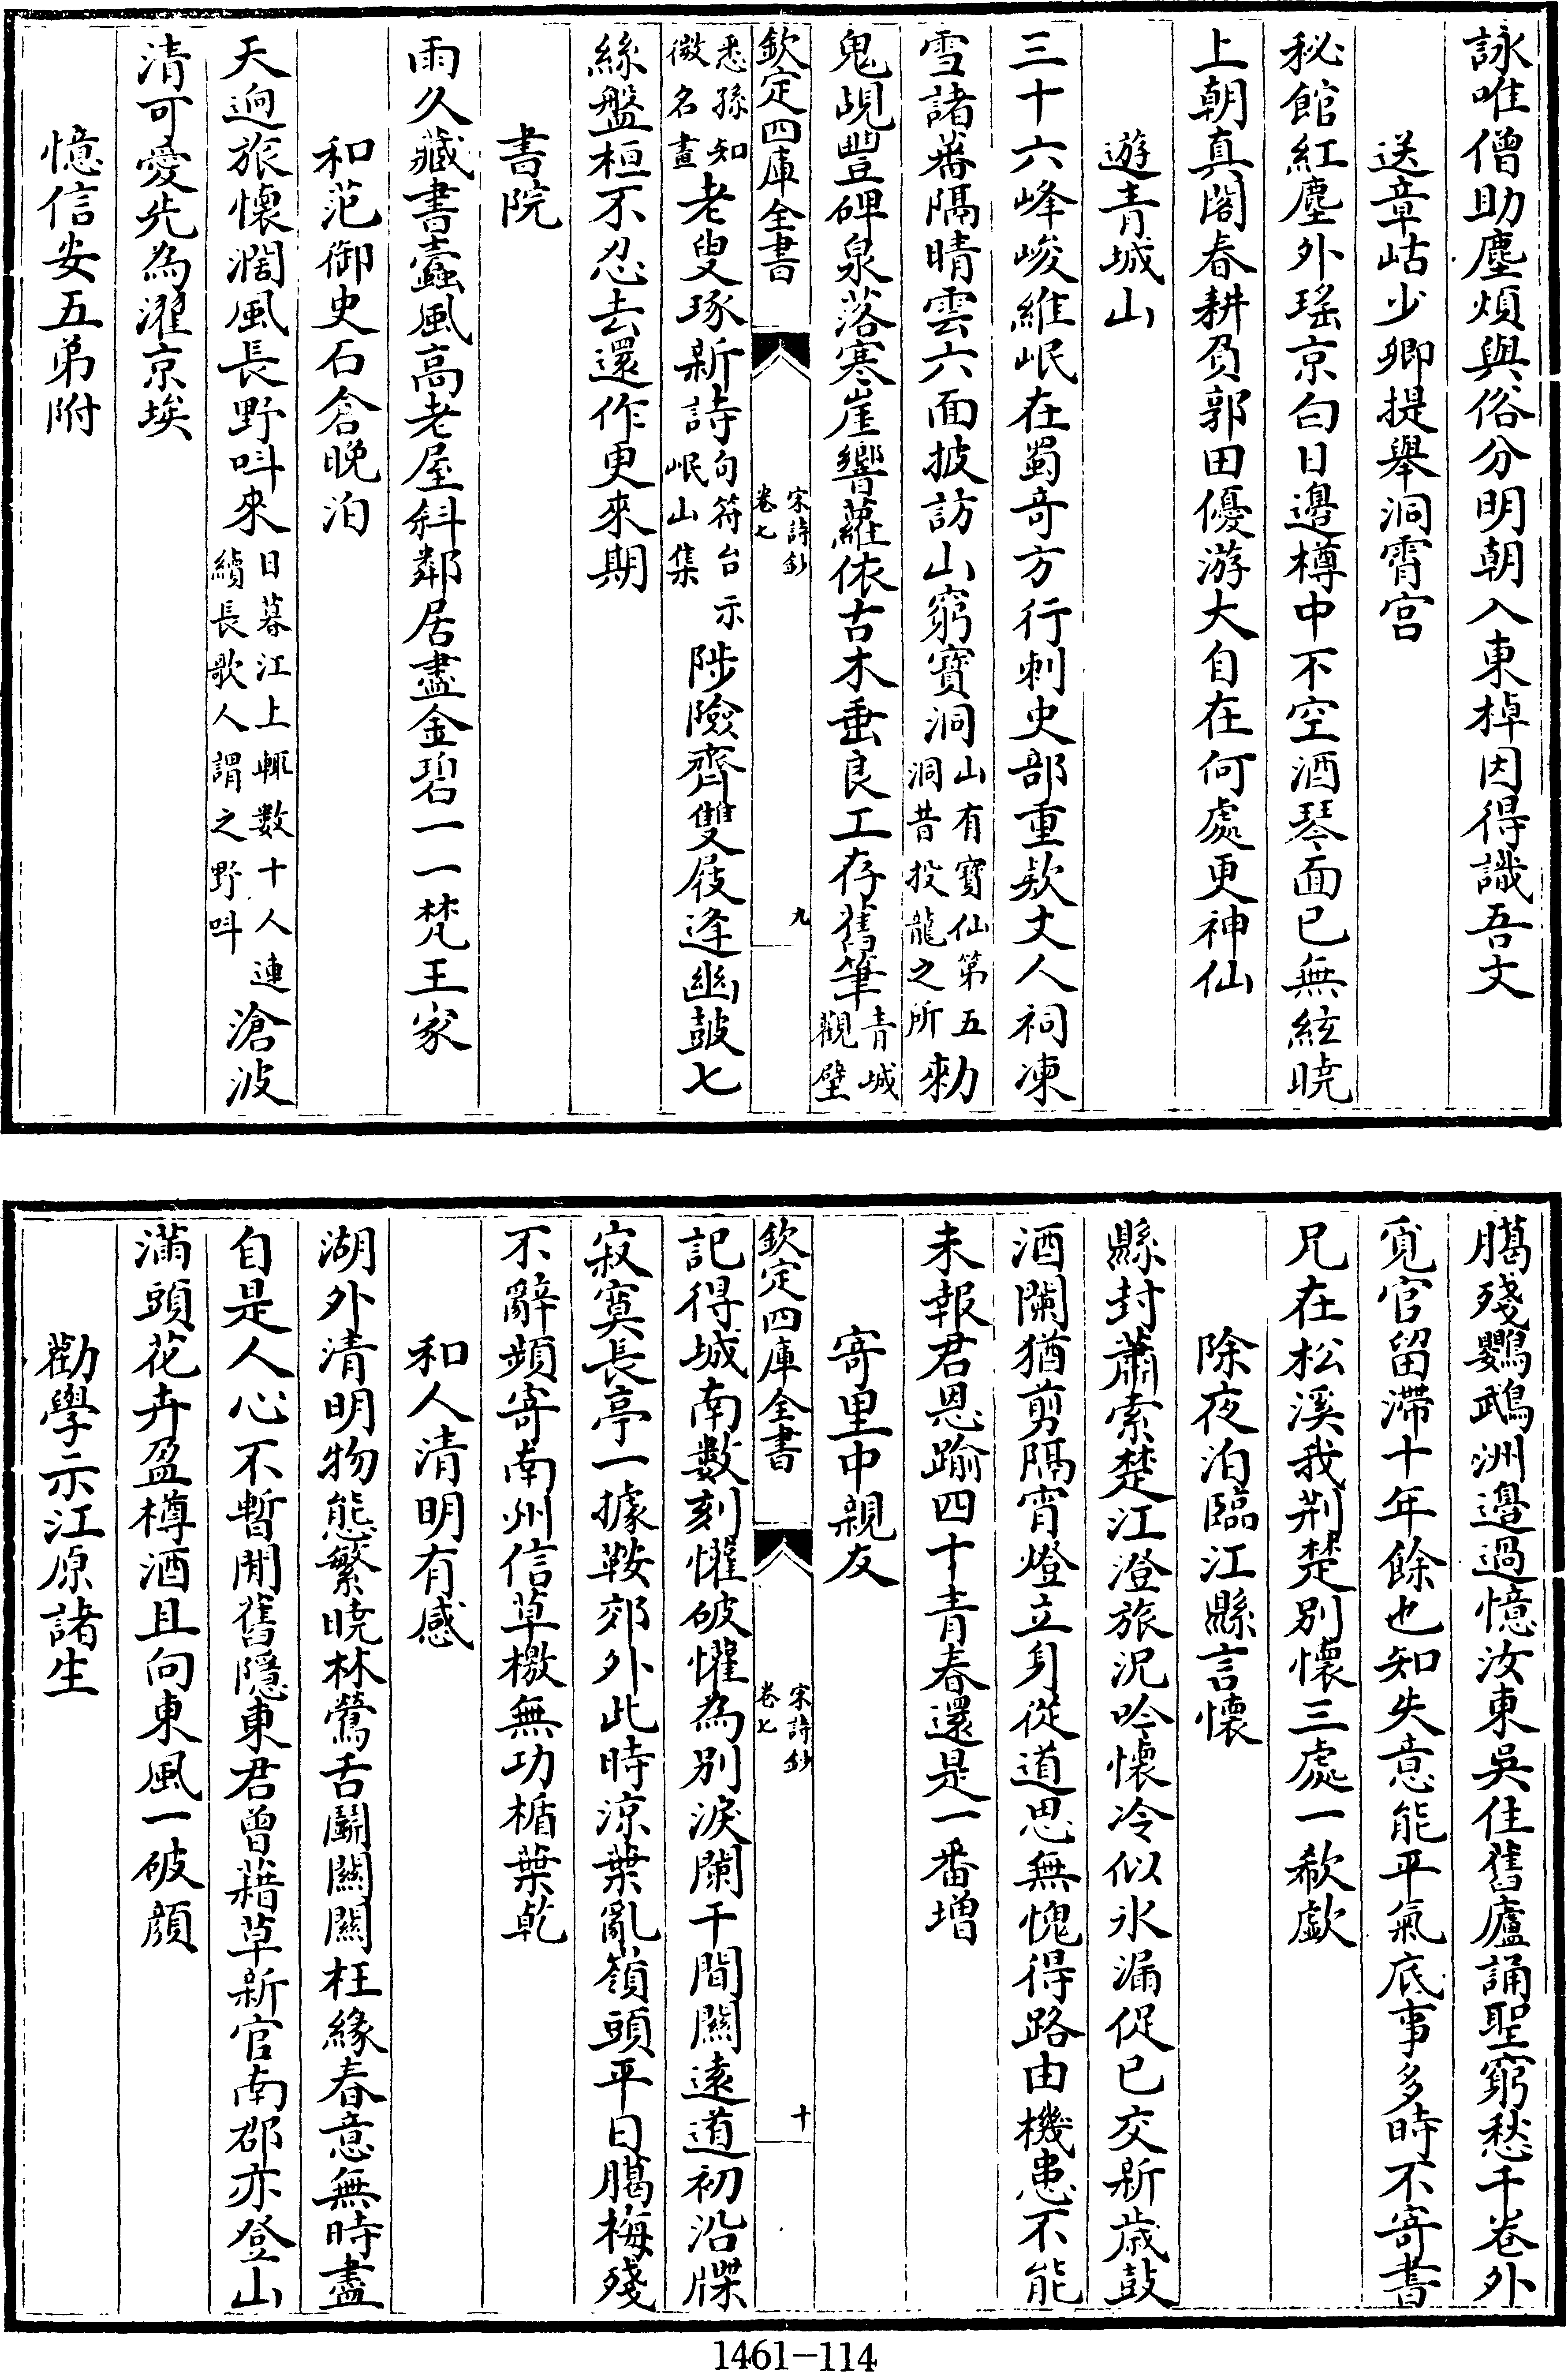 詠唯僧助塵煩與俗分明朝入東棹因得識吾文
送章岵少卿提舉洞霄宮
秘館紅塵外瑤京白日邊樽中不空酒琴面已無絃曉
上朝真閣春耕負郭田優游大自在何處更神仙
遊青城山
三十六峰峻維岷在蜀奇方行刺史部重欵丈人祠凍
雪諸蕃隔晴雲六面披訪山窮寶洞山有寶仙第五洞昔投龍之所勑
鬼覘豐碑泉落寒崖響蘿依古木垂良工存舊筆青城觀壁
欽定四庫全書
宋詩鈔
卷七
九
悉孫知微名畫老叟琢新詩句符台示岷山集陟險齊雙屐逢幽鼓七
絲盤桓不忍去還作更來期
書院
雨久藏書蠹風高老屋斜鄰居盡金碧一一梵王家
和范御史石倉晚泊
天逈旅懷濶風長野呌來日暮江上輒數十人連續長歌人謂之野呌滄波
清可愛先為濯京埃
憶信安五弟附
臈殘鸚鵡洲邊過憶汝東吳住舊廬誦聖窮愁千卷外
覓官留滯十年餘也知失意能平氣底事多時不寄書
兄在松溪我荆楚别懷三處一欷歔
除夜泊臨江縣言懷
縣封蕭索楚江澄旅況吟懷冷似氷漏促已交新歲鼓
酒闌猶剪隔宵燈立身從道思無愧得路由機患不能
未報君恩踰四十青春還是一番增
寄里中親友
記得城南數刻懽破懽為别淚闌干間關遠道初沿牒
欽定四庫全書
宋詩鈔
卷七
十
寂寞長亭一據鞍郊外此時凉葉亂嶺頭平日臈梅殘
不辭頻寄南州信草檄無功楯葉乾
和人清明有感
湖外清明物態繁曉林鶯舌鬭關關枉緣春意無時盡
自是人心不暫閒舊隱東君曾藉草新官南郡亦登山
滿頭花卉盈樽酒且向東風一破顔
勸學示江原諸生
1461-114